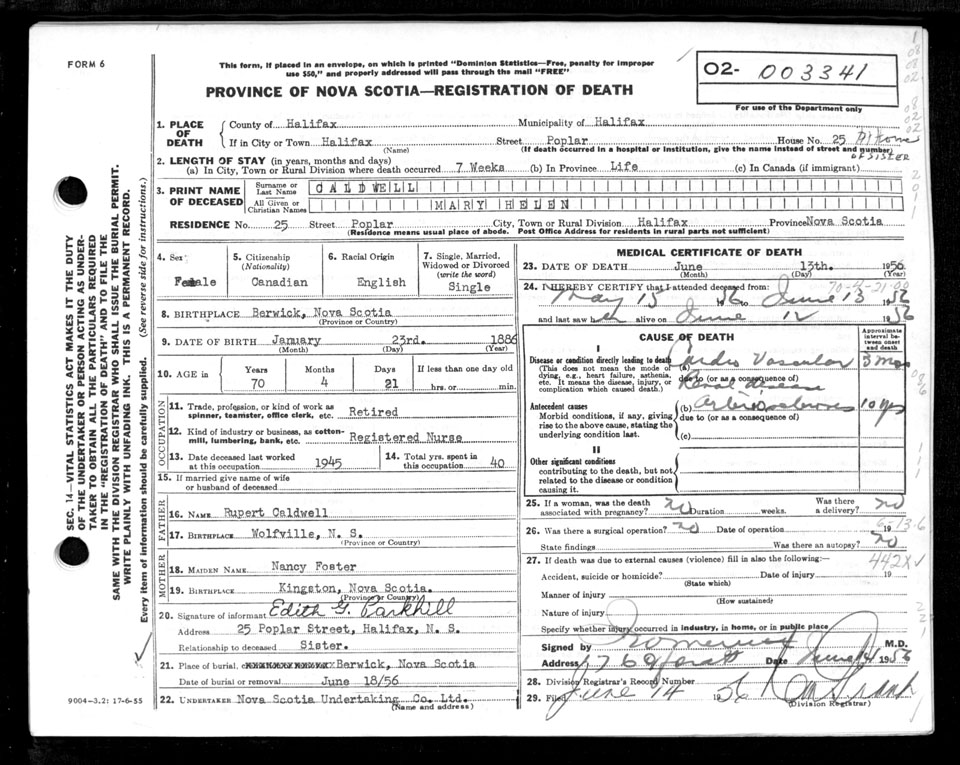 FORM 6
This form, if placed in an envelope, on which is printed "Dominion Statistics—Free, penalty for improper
use $50," and properly addressed will pass through the mail "FREE"
PROVINCE OF NOVA SCOTIA—REGISTRATION OF DEATH
02- 003341
For use of the Department only
1. PLACE OF DEATH
County of Halifax Municipality of Halifax
If in City or Town Halifax Street Poplar House No. 25 At Home
(Name) (If death occurred in a hospital or institution, give the name instead of street and number)
OF SISTER
2. LENGTH OF STAY (in years, months and days)
(a) In City, Town or Rural Division where death occurred 7 Weeks (b) In Province Life (c) In Canada (if immigrant)
3. PRINT NAME OF DECEASED
Surname or Last Name CALDWELL
All Given or Christian Names MARY HELEN
RESIDENCE No. 25 Street Poplar City, Town or Rural Division Halifax Province Nova Scotia
(Residence means usual place of abode. Post Office Address for residents in rural parts not sufficient)
4. Sex Female
5. Citizenship (Nationality) Canadian
6. Racial Origin English
7. Single, Married, Widowed or Divorced (write the word) Single
8. BIRTHPLACE Berwick, Nova Scotia
(Province or Country)
9. DATE OF BIRTH January 23rd. 1886
(Month) (Day) (Year)
10. AGE in Years Months Days If less than one day old
70 4 21 hrs. or min.
OCCUPATION
11. Trade, profession, or kind of work as spinner, teamster, office clerk, etc. Retired
12. Kind of industry or business, as cotton-mill, lumbering, bank, etc. Registered Nurse
13. Date deceased last worked at this occupation 1945
14. Total yrs. spent in this occupation 40
15. If married give name of wife or husband of deceased
FATHER
16. NAME Rupert Caldwell
17. BIRTHPLACE Wolfville, N. S.
(Province or Country)
MOTHER
18. MAIDEN NAME Nancy Foster
19. BIRTHPLACE Kingston, Nova Scotia.
(Province or Country)
20. Signature of informant Edith G. Parkhill
Address 25 Poplar Street, Halifax, N. S.
Relationship to deceased Sister.
21. Place of burial, Berwick, Nova Scotia
Date of burial or removal June 18/56
22. UNDERTAKER Nova Scotia Undertaking Co. Ltd.
(Name and address)
9004-3.2: 17-6-55
MEDICAL CERTIFICATE OF DEATH
23. DATE OF DEATH June 13th. 1956
(Month) (Day)
70-4-21-00
24. I HEREBY CERTIFY that I attended deceased from:
May 15 1956 to June 13 1956
and last saw her alive on June 12 1956
CAUSE OF DEATH
Approximate interval between onset and death
I
Disease or condition directly leading to death
(This does not mean the mode of dying, e.g., heart failure, asthenia, etc. It means the disease, injury, or complication which caused death.)
(a) Cardio Vascular 3 mos
due to (or as a consequence of)
Renal disease
Antecedent causes
Morbid conditions, if any, giving rise to the above cause, stating the underlying condition last.
(b) Arteriosclerosis 10 yrs
due to (or as a consequence of)
(c)
II
Other significant conditions
contributing to the death, but not related to the disease or condition causing it.
25. If a woman, was the death associated with pregnancy? No Duration weeks. Was there a delivery? No
26. Was there a surgical operation? no Date of operation 19
6-13-6
State findings Was there an autopsy? No
27. If death was due to external causes (violence) fill in also the following:—
442X
Accident, suicide or homicide? Date of injury 19
(State which)
Manner of injury
(How sustained)
Nature of injury
Specify whether injury occurred in industry, in home, or in public place
Signed by M.D.
Address Date June 14 1956
28. Division Registrar's Record Number
29. Filed June 14 1956
(Division Registrar)
SEC. 14—VITAL STATISTICS ACT MAKES IT THE DUTY
OF THE UNDERTAKER OR PERSON ACTING AS UNDER-
TAKER TO OBTAIN ALL THE PARTICULARS REQUIRED
IN THE "REGISTRATION OF DEATH" AND TO FILE THE
SAME WITH THE DIVISION REGISTRAR WHO SHALL ISSUE THE BURIAL PERMIT.
WRITE PLAINLY WITH UNFADING INK. THIS IS A PERMANENT RECORD.
Every item of information should be carefully supplied. (See reverse side for instructions.)